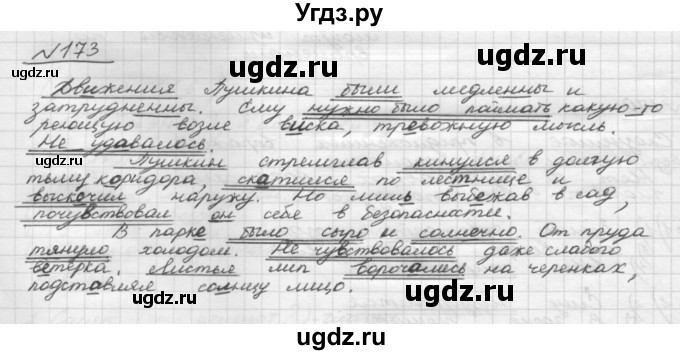 Угдз.ру
№173
Движения Пушкина были медленны и
затрудненны. Ему нужно было поймать какую-то
реющую возле виска, тревожную мысль.
Не удавалось.
Пушкин стремглав кинулся в долгую
тьму коридора, скатился по лестнице и
выскочил наружу. Но лишь выбежав в сад,
почувствовал он себя в безопасности.
В парке было сыро и солнечно. От пруда
тянуло холодом. Не чувствовалось даже слабого
ветерка. Листья лип ворочались на черенках,
подставляя солнцу лицо.
ugdz.ru
ugdz.ru
ugdz.ru
ugdz.ru
ugdz.ru
ugdz.ru
ugdz.ru
ugdz.ru
ugdz.ru
ugdz.ru
ugdz.ru